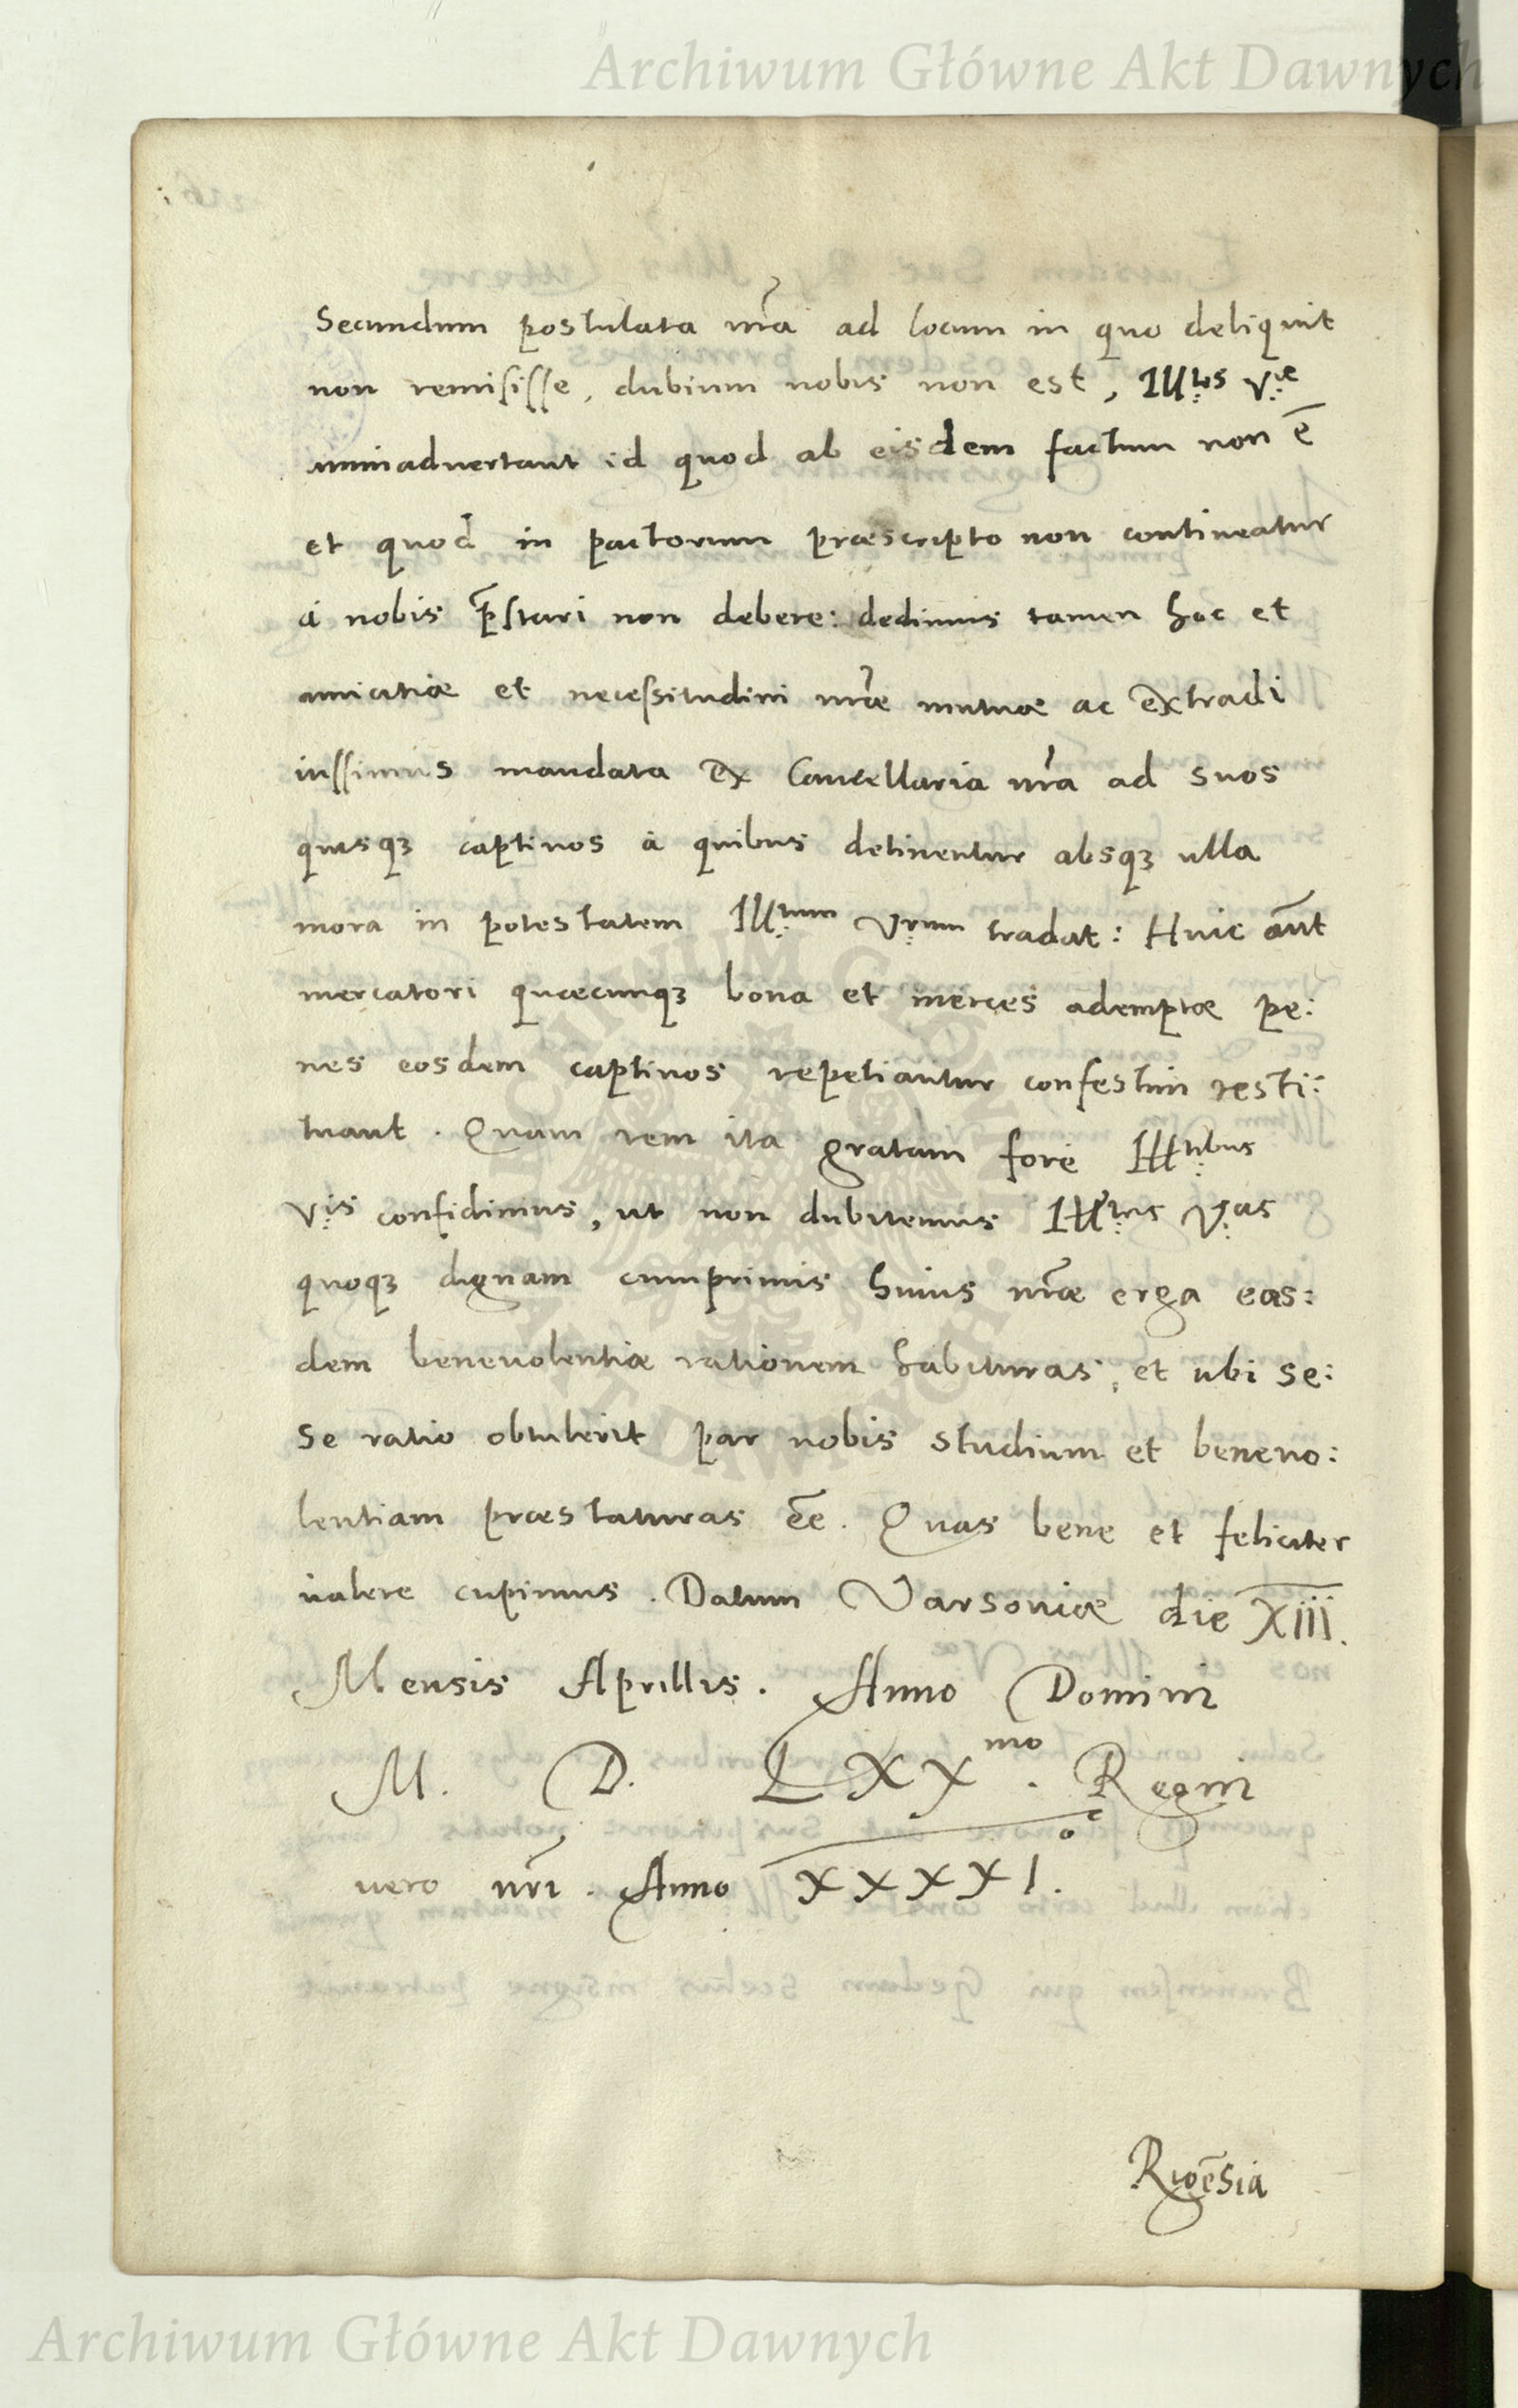 Archiwum Główne Akt Dawnych
Secundum postulata nr̃a ad locum in quo deliquit
non remisisse, dubium nobis non est, Ill:tes V:re
animadvertant id quod ab eisdem factum non ẽ
et quod in pactorum præscripto non contineatur
à nobis p̃stari non debere: dedimus tamen hoc et
amicitiæ et necessitudini nr̃æ mutuæ ac extradi
iussimus mandata ex Cancellaria nr̃a ad suos
quisqꝫ captivos à quibus detinentur absqꝫ ulla
mora in potestatem Ill:tum Vrum tradat: Huic aũt
mercatori quæcunqꝫ bona et merces ademptæ pe:
nes eosdem captivos repetiantur confestim resti:
tuant. Quam rem ita gratam fore Ill:tibus
V:is confidimus, ut non dubitemus Ill:tes V:as
quoqꝫ dignam cumprimis huius nr̃æ erga eas:
dem benevolentiæ rationem habituras, et ubi se:
se ratio obtulerit par nobis studium et benevo:
lentiam præstaturas ẽe. Quas bene et feliciter
valere cupimus. Datum Varsoviæ die XIII.
Mensis Aprillis. Anno Domini
M. D. LXX mo. Regni
vero nr̃i. Anno XXXXI o.
Rigẽsia
ARCHIWUM GŁÓWNE AKT DAWNYCH
Archiwum Główne Akt Dawnych